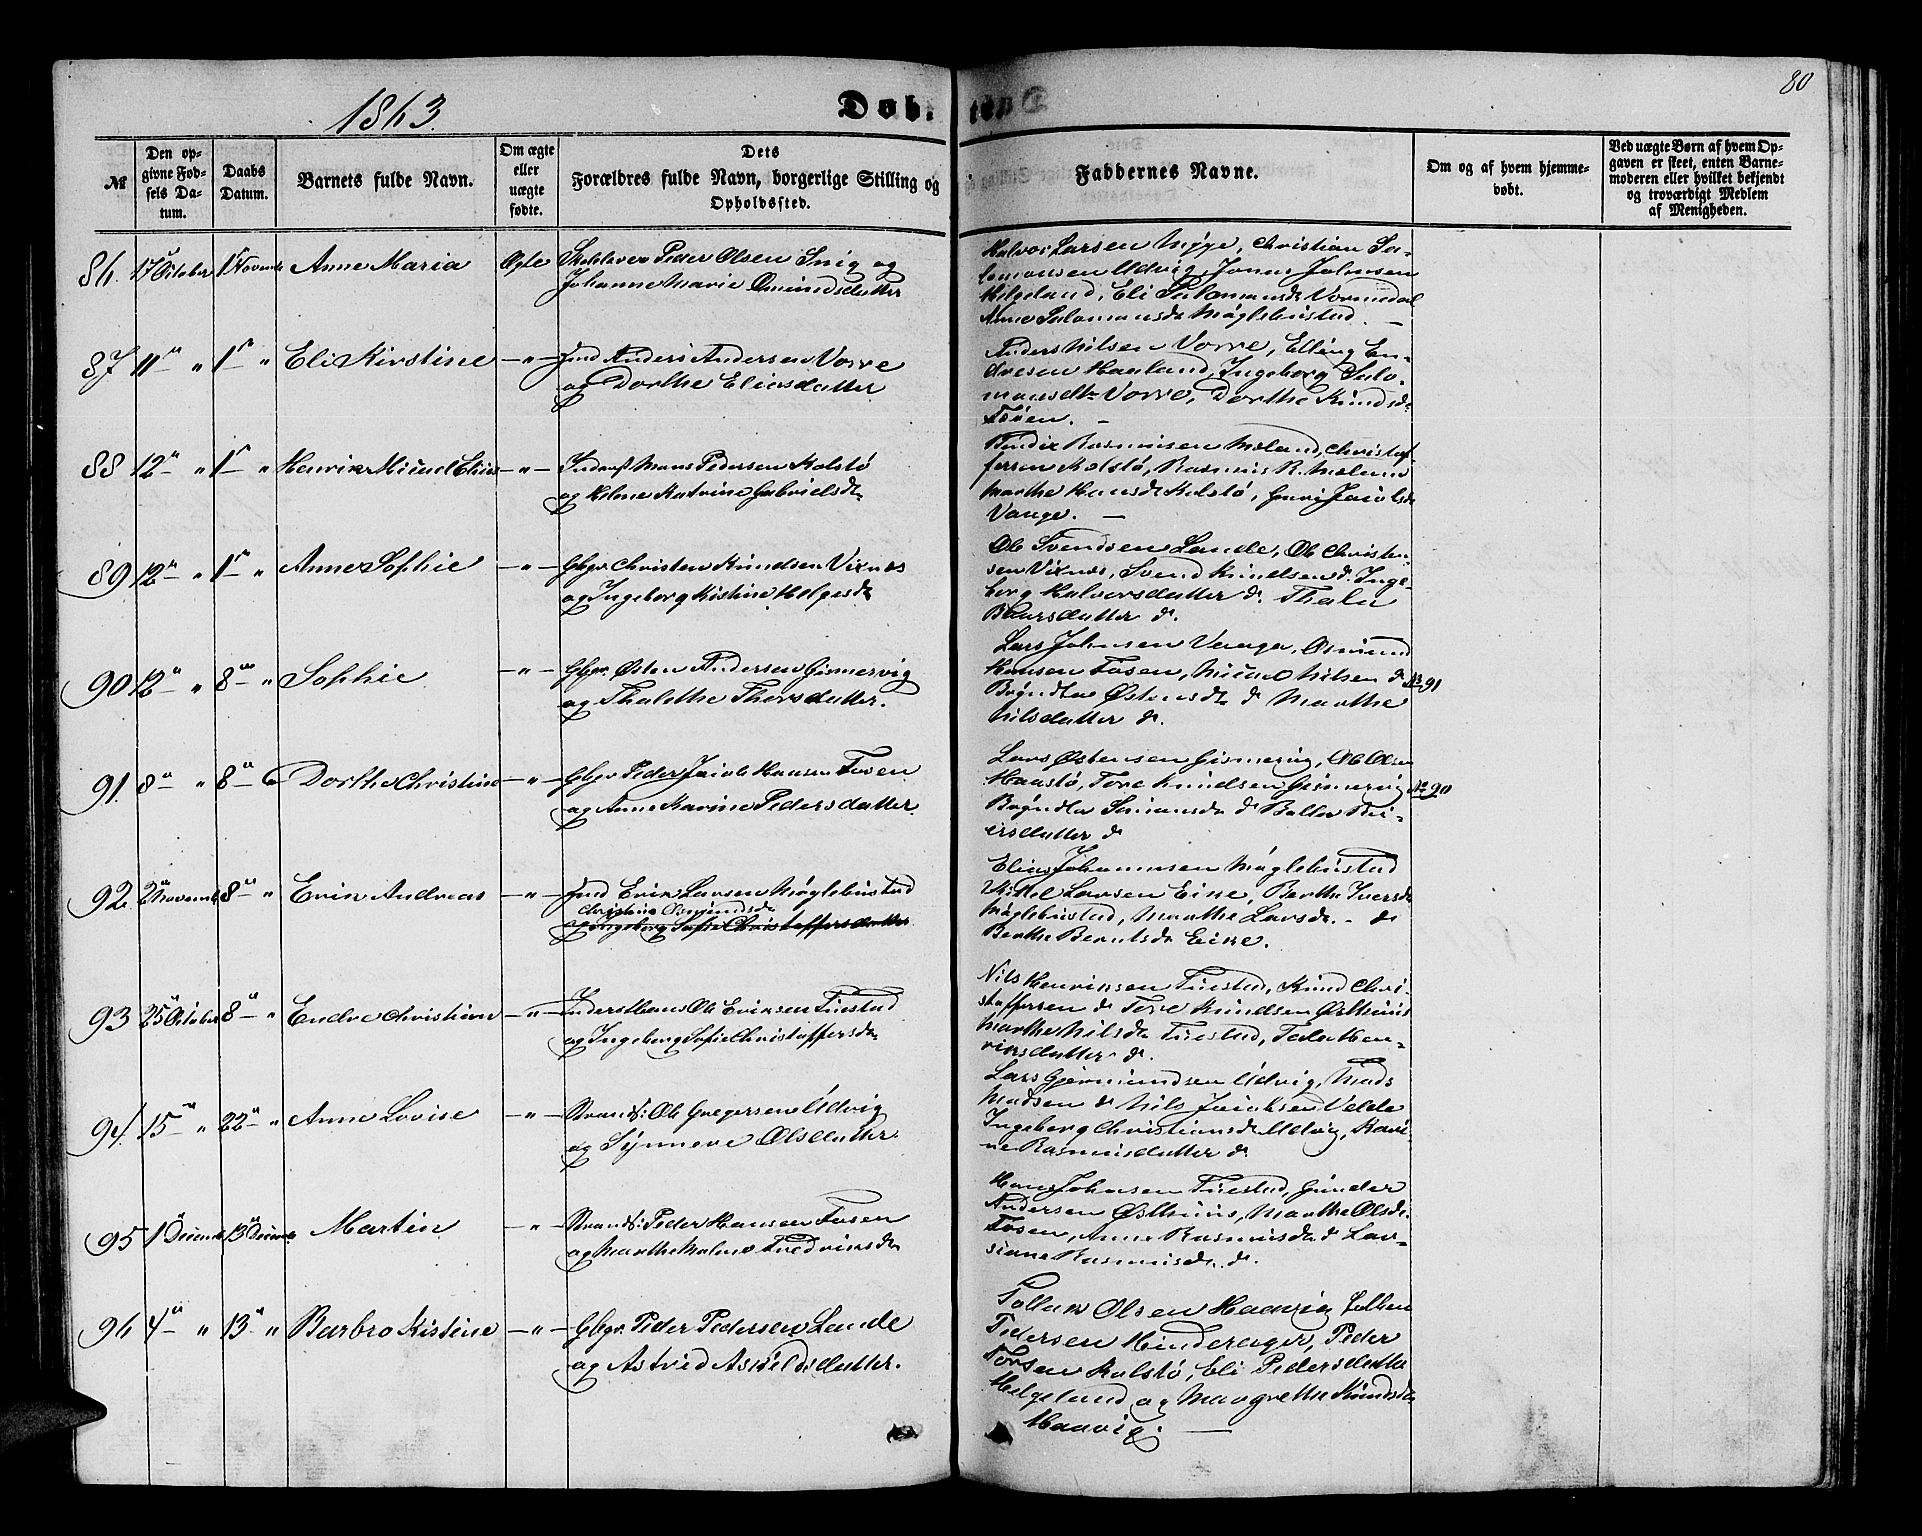 80
1863.
Døbte
№
Den opgivne Fødsels Datum.
Daabs Datum.
Barnets fulde Navn.
Om ægte eller uægte fødte.
Dets Forældres fulde Navn, borgerlige Stilling og Opholdssted.
Faddernes Navne.
Om og af hvem hjemmedøbt.
Ved uægte Børn af hvem Opgaven er skeet, enten Barnemoderen eller hvilket bekjendt og troværdigt Medlem af Menigheden.
86. 17 October 1 Novemb Anne Maria Ægte Peder Olsen Snig og
Johanne Marie Osmundsdatter
Halvor Larsen Christian Sa-
lomonsen Udvig, Jonas Johnsen
Helgeland, Eli Salomonsdr Vormedal
Anne Salomonsdr Møglebustad. —
87 11 " 1 " Eli Kirstine — " — Ind Anders Andersen Vorre
og Dorthe Eliasdatter
Anders Nilsen Vorre, Elling En-
dresen Haaland, Ingeborg Salo-
monsdtr Vorre, Dorthe Knudsdr
Fosen. —
88 12 " 1 " Henrik Micael Elias — " — Inderst Mons Pedersen Kolstø
og Helene Katrine Gabrielsdr
Bendix Rasmusen Meland, Christof-
fersen Kolstø, Rasmus R. Meland
Marthe Hansdr Kolstø, Guri Jacobsdr
Vange. —
89 12 " 1 " Anne Sophie — " — Gbgr Christen Knudsen Vixnes
og Ingeborg Kistine Helgesdr
Ole Svendsen Lande, Ole Christen-
sen Vixnes, Svend Knudsen do. Inge-
borg Halvorsdatter do. Thale
Baarsdatter do.
90 12 " 8 " Sophie — " — Gbgr. Østen Andersen Gismervig
og Thalethe Thorsdatter.
Lars Johnsen Vange, Osmund
Hansen Fosen, Micael Nilsen do №91
Brynhta Østensdr do Marthe
Nilsdatter do.
91. 8 " 8 " Dorthe Christine — " — Gbgr Peder Jacob Hansen Fosen
og Anne Karine Pedersdatter.
Lars Østensen Gismervig, Ole Olsen
Haastø, Tore Knudsen Gismervig №90
Brynhta Simonsdr do Bolla
ersdatter do
92. 2 Novemb 8 " Erik Andreas — " — Ind Erik Larsen Møglebustad
Christine Osmundsdr
og Ingeborg Sofie Christoffersdatter
Elias Johannesen Møglebustad
Mikkel Larsen Eike, Berthe Iversdr
Møglebustad, Marthe Larsdr. - do
Berthe Berntsdr Eike.
93 25 October 8 " Endre Christian — " — Inderst Hans Ole Eriksen Tuestad
og Ingeborg Sofie Christoffersdr
Nils Henriksen Tuestad, Knud Chri-
stoffersen do Tore Knudsen Østhuus
Marthe Nilsdr Tuestad, Teda Hen-
riksdatter do.
94. 15 " 22 " Anne Lovise — " — Strands: Ole Gregersen Udvig
og Synneve Olsdatter
Lars Gjermundsen Udvig, Mads
Madsen do Nils Jacobsen Velde
Ingeborg Christiansdr Udvig, Kari-
ne Rasmusdatter do
95 1 Decemb 13 Decemb Martin — " — Strands: Peder Hansen Fosen
og Marthe Malene Fredriksdr
Hans Johnsen Tuestad, Gunder
Andersen Østhuus, Marthe Olsdr.
Fosen, Anne Rasmusdr do Lar-
siane Rasmusdr. do.
96 4 " 13 " Barbro Kistine — " — Gbgr. Peder Pedersen Lande
og Astrid Askildsdatter.
Tollak Olsen Haavig
Pedersen Hinderager, Peder
Torsen Kolstø, Eli Pedersdatter
Helgeland og Margrethe Knudsdr
Haavig. —